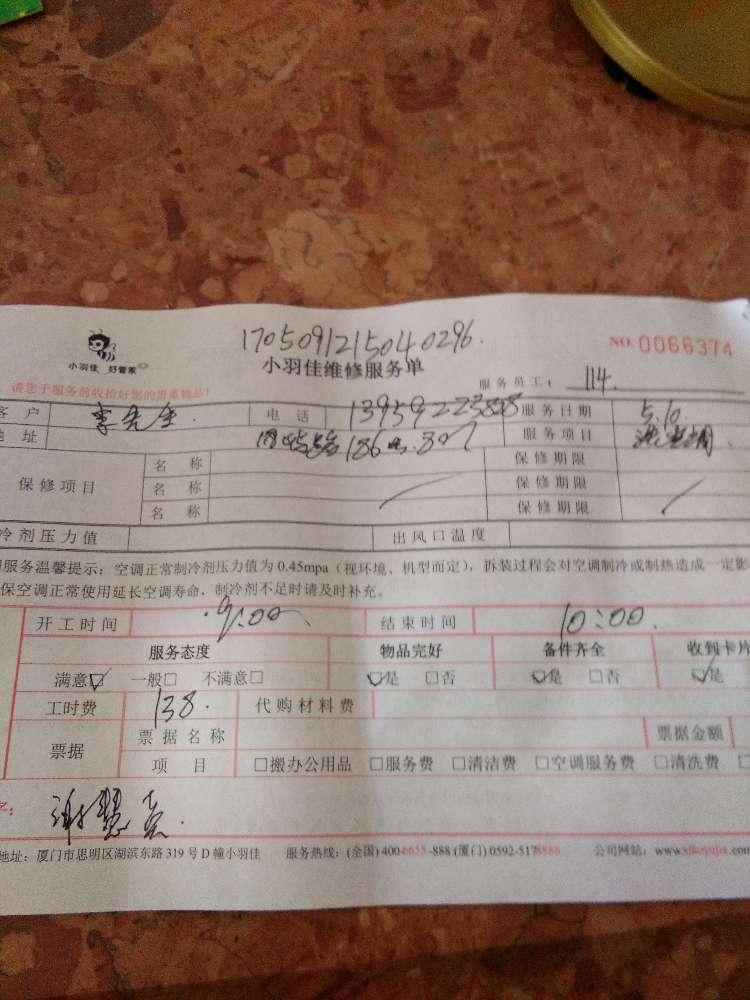 小羽佳 好管家
1705091215040296.
小羽佳维修服务单
NO. 0066374
请您于服务前收拾好您的贵重物品!
服务员工: 114.
客户 李先生. 电话 服务日期 5.10.
地址 服务项目
保修项目 名称 保修期限
名称 保修期限
名称 保修期限
冷剂压力值 出风口温度
服务温馨提示:空调正常制冷剂压力值为 0.45mpa(视环境、机型而定),拆装过程会对空调制冷或制热造成一定影
保空调正常使用延长空调寿命,制冷剂不足时请及时补充。
开工时间 9:00 结束时间 10:00.
服务态度 物品完好 备件齐全 收到卡片
满意☑ 一般□ 不满意□ ☑是 □否 ☑是 □否 ☑是
工时费 138. 代购材料费
票据 票据名称 票据金额
项目 □搬办公用品 □服务费 □清洁费 □空调服务费 □清洗费
字:
地址:厦门市思明区湖滨东路 319 号 D 幢小羽佳 服务热线:(全国) 400-6655-888 (厦门) 0592-5178888 公司网站:www.xiaoyujia.com